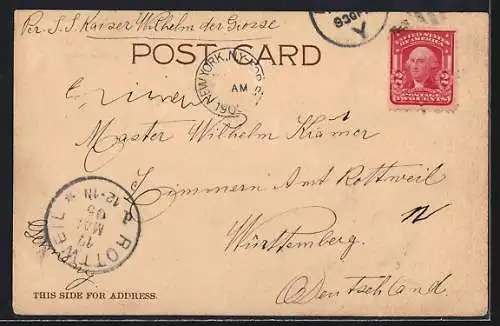 Per S.S. Kaiser Wilhelm der Grosse
POST CARD
NEW YORK, N.Y.
AM
1905
8 30 P
UNITED STATES
OF AMERICA
2 2
POSTAGE
TWO CENTS
Master Wilhelm Krämer
Zimmern Amt Rottweil
Württemberg
Deutschland
ROTTWEIL
17
MAI
05
12-1N
THIS SIDE FOR ADDRESS.